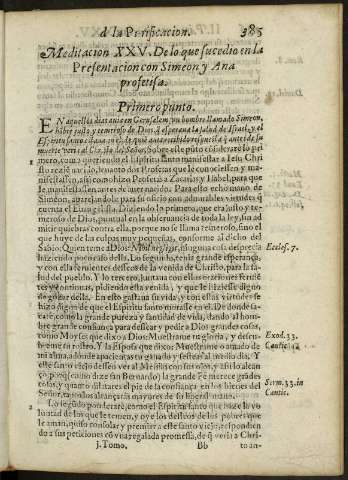 d la Purificacion. 385
Meditacion XXV. De lo que sucedio en la
Presentacion con Simeon y Ana
profetisa.
Primero punto.
EN aquellos dias auia en Gerusalem, vn hombre llamado Simeon,
hōbre justo, y temeroso de Dios, q̃ esperaua la salud de Israel, y el
Espiritu santo estaua en el, de quiē auia recibido
muerte veria al Christo del Señor. Sobre este pūto cōsiderarè lo pri
mero, como queriendo el Espiritu santo manifestar a Iesu Christo
rezien nacido, leuanto dos Profetas que le conociessen y ma-
nifestassen, assi como hizo Profetas a Zacarias y Isabel, para que
le manifestassen antes de auer nacido. Para esto echo mano de
Simeon, aparejandole para su oficio con admirables virtudes q̃
cuenta el Euangelista. Diziendo lo primero, que era justo y te-
meroso de Dios, puntual en la obseruancia de toda la ley, sin ad
mitir quiebras contra ella, porque no se llama temeroso, sino el
que huye de las culpas muy pequeñas, conforme al dicho del
Sabio: Quien teme a Dios ninguna cosa desprecia Eccles. 7.
haziendo poco caso della. Lo segundo, tenia grande esperança,
y con ella feruientes desseos de la venida de Christo, para la sa-
lud del pueblo. Y lo tercero, juntaua con ellos oraciones feruiē
tes y continuas, pidiendo esta venida, y que le hiziesse digno
de gozar della. En esto gastaua su vida, y con estas virtudes se
hizo digno de que el Espiritu santo morasse en el. De donde sa-
carè, como la grande pureza y santidad de vida, dando al hom-
bre grande confiança para dessear y pedir a Dios grandes cosas,
como Moyses que dixo a Dios: Muestrame tu gloria, y descu- Exod. 33.
breme tu rostro. Y la Esposa que dixo: Muestrame o amado de Cantic.
mi alma, donde apacientas tu ganado y sesteas al medio dia. Y
este santo viejo desseo ver al Mesias con sus ojos, y assi lo alcan
ço, porque (como dize san Bernardo) la grande Fè merece grandes Serm. 33. in
cosas, y quanto dilatares el pie de la confiança en los bienes del Cantic.
Señor, tanto los alcançaras mayores de su liberal mano.
Lo segūdo ponderarè, como el Espiritu santo que haze la vo
luntad de los que le temen, y oye los desseos de los pobres que
le aman, quiso cumplir la de este santo viejo, respondien
do a sus peticiones cō vna regalada promessa, de q̃ veria a Chri-
1. Tomo. Bb to an-